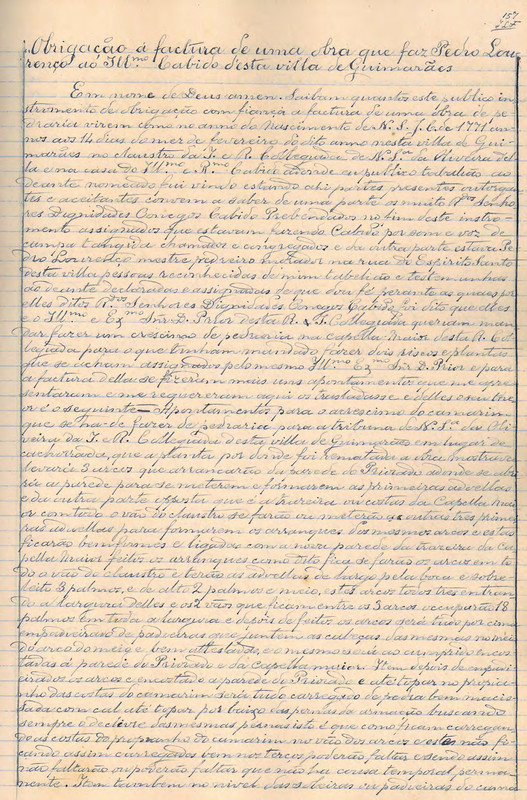 157
Obrigação á factura de uma obra que faz Pedro Lou-
renço ao Ill.mo Cabido d'esta villa de Guimarães
Em nome de Deus amen. Saibam quantos este publico in-
stromento de obrigação com fiança á factura de uma obra de pe-
draria virem como no anno do Nascimento de N. S. J. C. de 1771 an-
nos aos 14 dias do mez de fevereiro do dito anno nesta villa de Gui-
marães no Claustro da I. e R. Collegiada de N. Sr.a da Oliveira del-
la e na casa do Ill.mo e R.mo Cabido aonde eu publico tabalião ao
deante nomeado fui vindo estando ahi partes presentes outorgan-
tes e aceitantes convem a saber de uma parte os muito R.dos Senho-
res Dignidades Conegos Cabido Prebendados no fim deste instro-
mento assignados que estavam fazendo Cabido por som e voz de
campa tangida chamados e congregados e da outra parte estava Pe-
dro Lourenço mestre pedreiro morador na rua do Espirito Santo
desta villa pessoas reconhecidas de mim tabelião e testemunhas
ao deante declaradas e assignadas de que dou fé perante as quaes por
elles ditos R.dos Senhores Dignidades Conegos Cabido foi dito que elles
e o Ill.mo e Ex.mo Snr. D. Prior desta R. & I. Collegiada queriam man-
dar fazer um crescimo de pedraria na capella maior desta R. Col-
legiada para o que tinham mandado fazer dois riscos e plantas
que se acham assignados pelo mesmo Ill.mo Ex.mo Snr. D. Prior e para
a factura della se fizeram mais uns apontamentos que me apre-
sentaram e me requereram aqui os trasladasse e delles o seu the-
or é o seguinte = Apontamentos para o acrescimo do camarim
que se ha-de fazer de pedraria para a tribuna de N. S.ra da Oli-
veira da I. e R. Collegiada desta villa de Guimarães em lugar da
cachorrada, que a planta por donde foi rematada a obra mostrava
levaria 3 arcos que arrancarão da parede do Priorado adonde se abri-
rá a parede para se meterem e formarem as primeiras advellas
e da outra parte oposta que é a trazeira ou costas da Capella mai-
or com todo o vão do claustro se farão ou meterão as outras tres primei-
ras advellas para formarem os arranques dos mesmos arcos e estes
ficarão bem firmes e ligados com a nova parede da trazeira da Ca-
pella Maior feitos os arranques como dito fica se farão os arcos em to-
do o vão do claustro e terão as advellas de largo pela boca e sobre
leito 3 palmos, e de alto 2 palmos e meio, estes arcos todos tres entran-
do a largura delles e os 2 vãos que ficam entre os 3 arcos occuparão 18
palmos em toda a largura e depois de feitos os arcos será tudo por cima
empadeirado de padeiras que juntem as cabeças das mesmas no meio
do arco do meio e bem atestados, e o mesmo será ao comprido encos-
tadas á parede do Priorado e da capella maior. Item depois de empadei-
rados os arcos e encostado a parede do Priorado e até topar no propia-
nho das costas do camarim será tudo carregado de pedra bem macis-
sada com cal até topar por baixo das pernas da armação buscando
sempre o declive das mesmas pernas isto é que como ficam carregan-
do as costas do propianho do camarim no vão dos arcos e estes não fi-
cando assim carregados bem nos terços poderão faltar e sendo assim
não faltarão ou poderão faltar que não ha cousa temporal perma-
nente. Item tambem no nivel das soleiras ou padieiras da cama